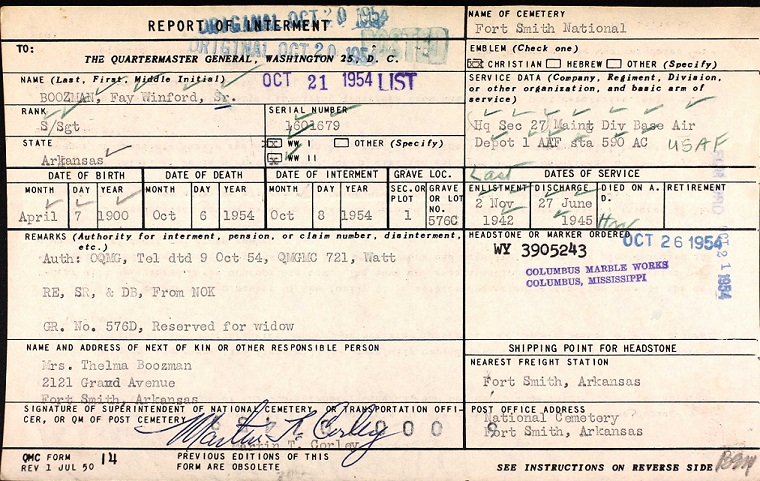 REPORT OF INTERMENT
ORIGINAL OCT 20 1954
ORIGINAL OCT 20 1954
POSTED
TO:
THE QUARTERMASTER GENERAL, WASHINGTON 25, D. C.
NAME (Last, First, Middle Initial)
OCT 21 1954 LIST
BOOZMAN, Fay Winford, Sr.
RANK
S/Sgt
SERIAL NUMBER
1601679
STATE
Arkansas
WW I
OTHER (Specify)
WW II
NAME OF CEMETERY
Fort Smith National
EMBLEM (Check one)
CHRISTIAN HEBREW OTHER (Specify)
SERVICE DATA (Company, Regiment, Division,
or other organization, and basic arm of
service)
Hq Sec 27 Maint Div Base Air
Depot 1 AAF sta 590 AC USAF
DATE OF BIRTH
MONTH DAY YEAR
April 7 1900
DATE OF DEATH
MONTH DAY YEAR
Oct 6 1954
DATE OF INTERMENT
MONTH DAY YEAR
Oct 8 1954
GRAVE LOC.
SEC. OR PLOT
1
GRAVE OR LOT NO.
576C
Last
DATES OF SERVICE
ENLISTMENT DISCHARGE DIED ON A. D. RETIREMENT
2 Nov 27 June
1942 1945
REMARKS (Authority for interment, pension, or claim number, disinterment,
etc.)
Auth: OQMG, Tel dtd 9 Oct 54, QMGMC 721, Watt
RE, SR, & DB, From NOK
GR. No. 576D, Reserved for widow
HEADSTONE OR MARKER ORDERED
OCT 26 1954
WY 3905243
COLUMBUS MARBLE WORKS
COLUMBUS, MISSISSIPPI
OCT 21 1954
NAME AND ADDRESS OF NEXT OF KIN OR OTHER RESPONSIBLE PERSON
Mrs. Thelma Boozman
2121 Grand Avenue
Fort Smith, Arkansas
SHIPPING POINT FOR HEADSTONE
NEAREST FREIGHT STATION
Fort Smith, Arkansas
SIGNATURE OF SUPERINTENDENT OF NATIONAL CEMETERY, OR TRANSPORTATION OFFI-
CER, OR QM OF POST CEMETERY
Martin T. Corley
Martin T. Corley
POST OFFICE ADDRESS
National Cemetery
Fort Smith, Arkansas
QMC FORM 14
REV 1 JUL 50
PREVIOUS EDITIONS OF THIS
FORM ARE OBSOLETE
SEE INSTRUCTIONS ON REVERSE SIDE